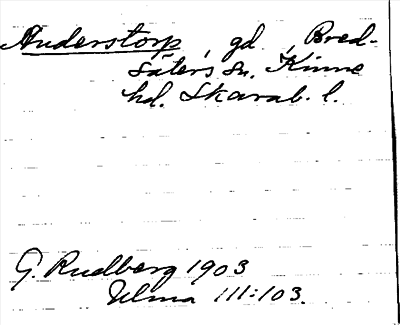 Anderstorp, gd, Bred-
säters sn. Kinne
hd. Skarab. l.
G. Rudberg 1903
Ulma 111:103.